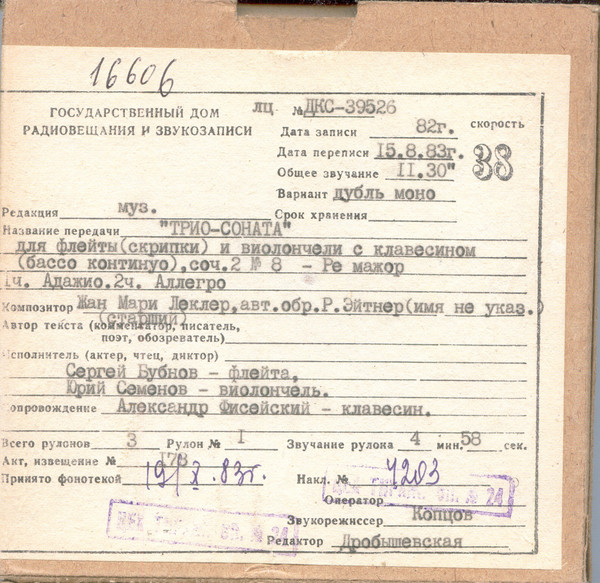 16606
ГОСУДАРСТВЕННЫЙ ДОМ
РАДИОВЕЩАНИЯ И ЗВУКОЗАПИСИ
ЛЦ № ДКС-39526
Дата записи 82г. скорость
Дата переписи 15.8.83г. 38
Общее звучание 11.30"
Вариант дубль моно
Редакция муз. Срок хранения
Название передачи "ТРИО-СОНАТА"
для флейты(скрипки) и виолончели с клавесином
(бассо континуо),соч.2 № 8 - Ре мажор
1ч. Адажио.2ч. Аллегро
Композитор Жан Мари Леклер,авт.обр.Р.Эйтнер(имя не указ.)
(старший)
Автор текста (комментатор, писатель,
поэт, обозреватель)
Исполнитель (актер, чтец, диктор)
Сергей Бубнов - флейта,
Юрий Семенов - виолончель.
Сопровождение Александр Фисейский - клавесин.
Всего рулонов 3 Рулон № 1 Звучание рулона 4 мин. 58 сек.
Акт, извещение № 178
Принято фонотекой 19/X.83г. Накл. № 4203
Оператор
Звукорежиссер Копцов
Редактор Дробышевская